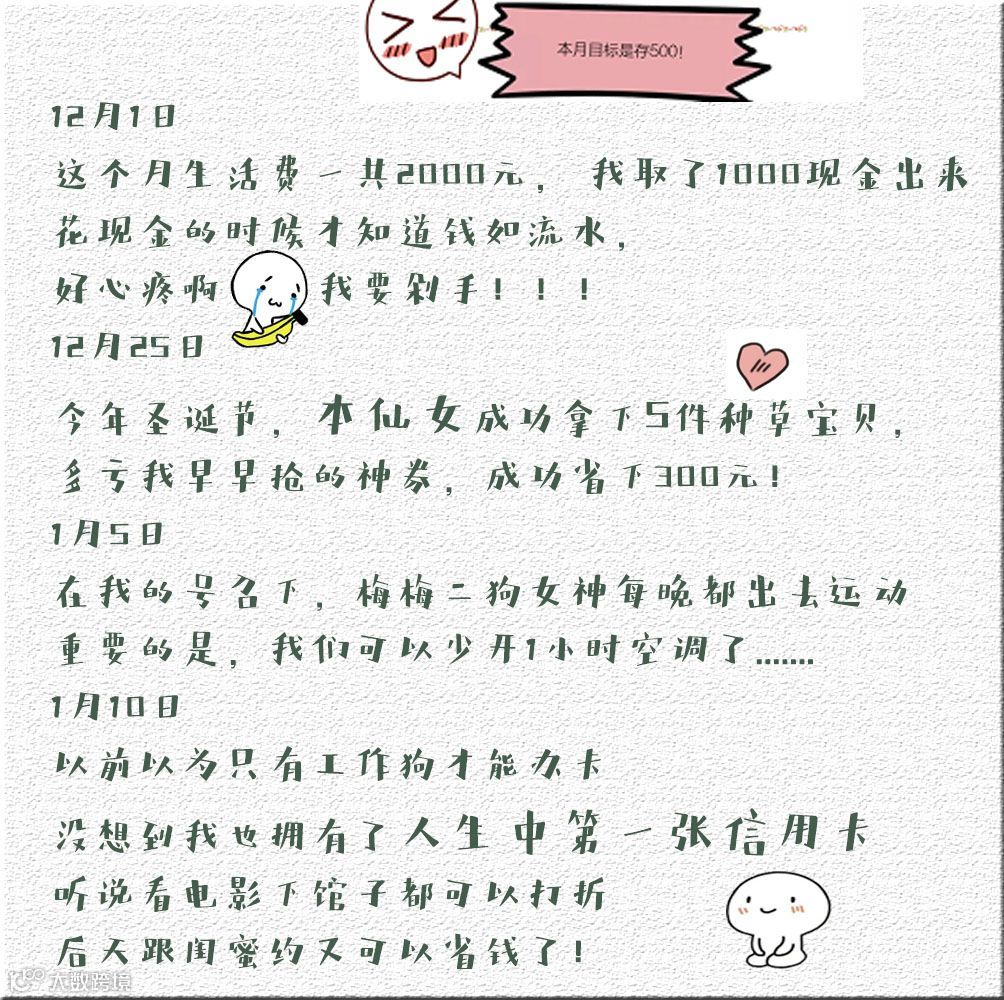 本月目标是存500!
12月1日
这个月生活费一共2000元，我取了1000现金出来
花现金的时候才知道钱如流水，
好心疼啊 我要剁手！！！
12月25日
今年圣诞节，本仙女成功拿下5件种草宝贝，
多亏我早早抢的神券，成功省下300元！
1月5日
在我的号召下，梅梅二狗女神每晚都出去运动
重要的是，我们可以少开1小时空调了.......
1月10日
以前以为只有工作狗才能办卡
没想到我也拥有了人生中第一张信用卡
听说看电影下馆子都可以打折
后天跟闺蜜约又可以省钱了！
大数跨境